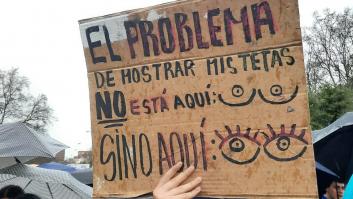 EL PROBLEMA
DE MOSTRAR MIS TETAS
NO ESTÁ AQUÍ:
SINO AQUÍ: